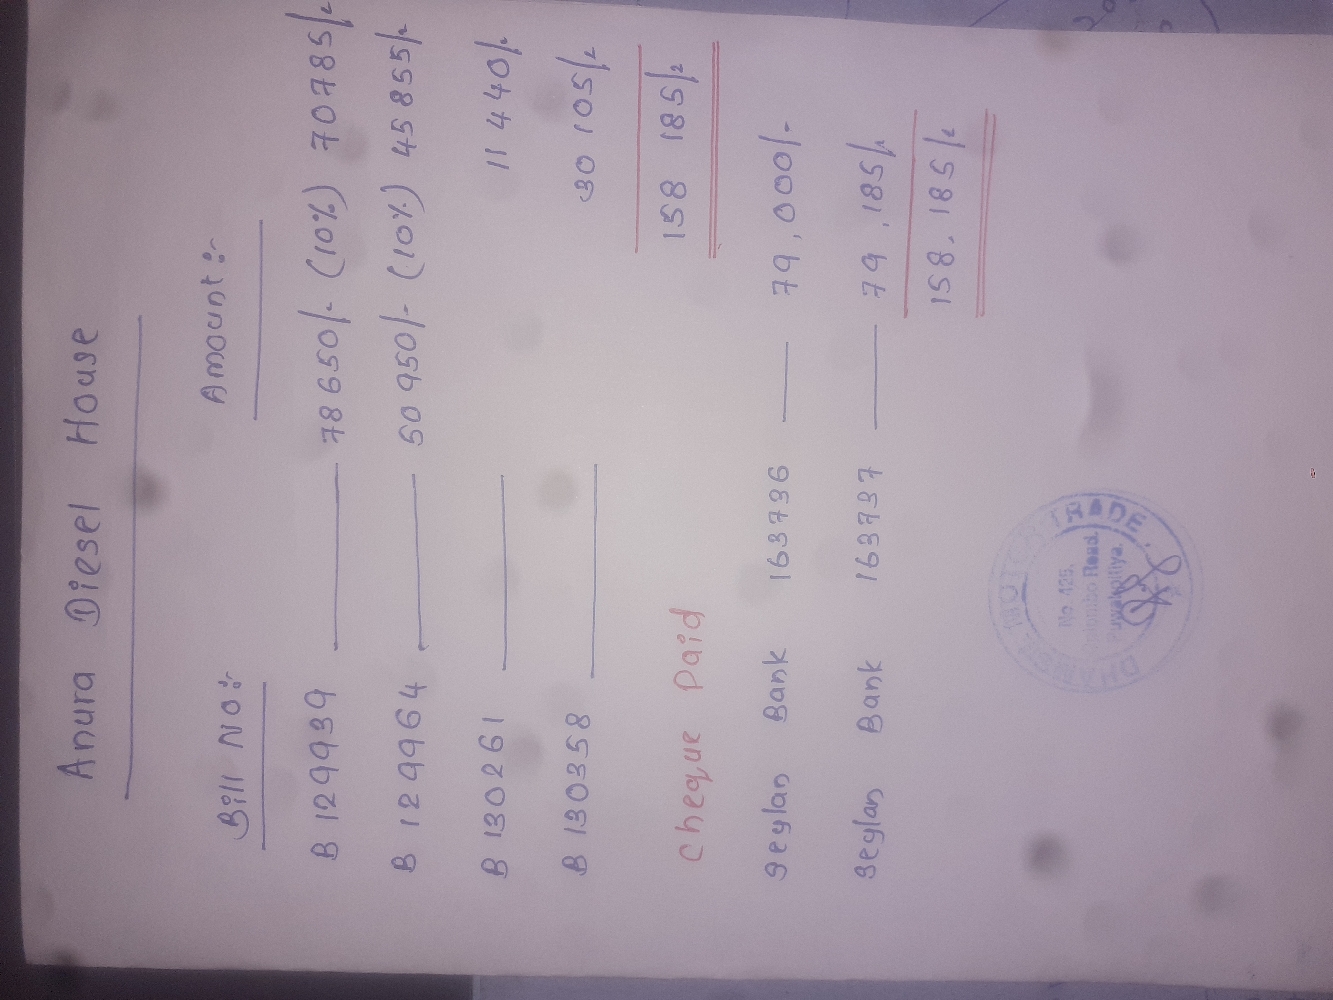 Anura Diesel House
Bill No:- Amount:-
B 129939 — 78650/- (10%) 70785/-
B 129964 — 50950/- (10%) 45855/-
B 130261 — 11 440/-
B 130358 — 30 105/-
158 185/-
Cheque Paid
seylan Bank 163736 — 79,000/-
seylan Bank 163737 — 79,185/-
158,185/-
MOTOR TRADE.
No. 426,
Colombo Road,